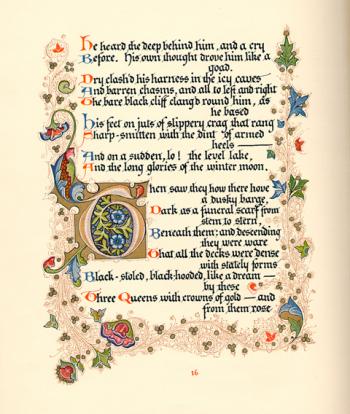 He heard the deep behind him, and a cry
Before. His own thought drove him like a
goad.
Dry clash'd his harness in the icy caves
And barren chasms, and all to left and right
The bare black cliff clang'd round him, as
he based
His feet on juts of slippery crag that rang
Sharp-smitten with the dint of armed
heels —
And on a sudden, lo! the level lake,
And the long glories of the winter moon.
Then saw they how there hove
a dusky barge,
Dark as a funeral scarf from
stem to stern,
Beneath them; and descending
they were ware
That all the decks were dense
with stately forms
Black-stoled, black-hooded, like a dream —
by these
Three Queens with crowns of gold — and
from them rose
16